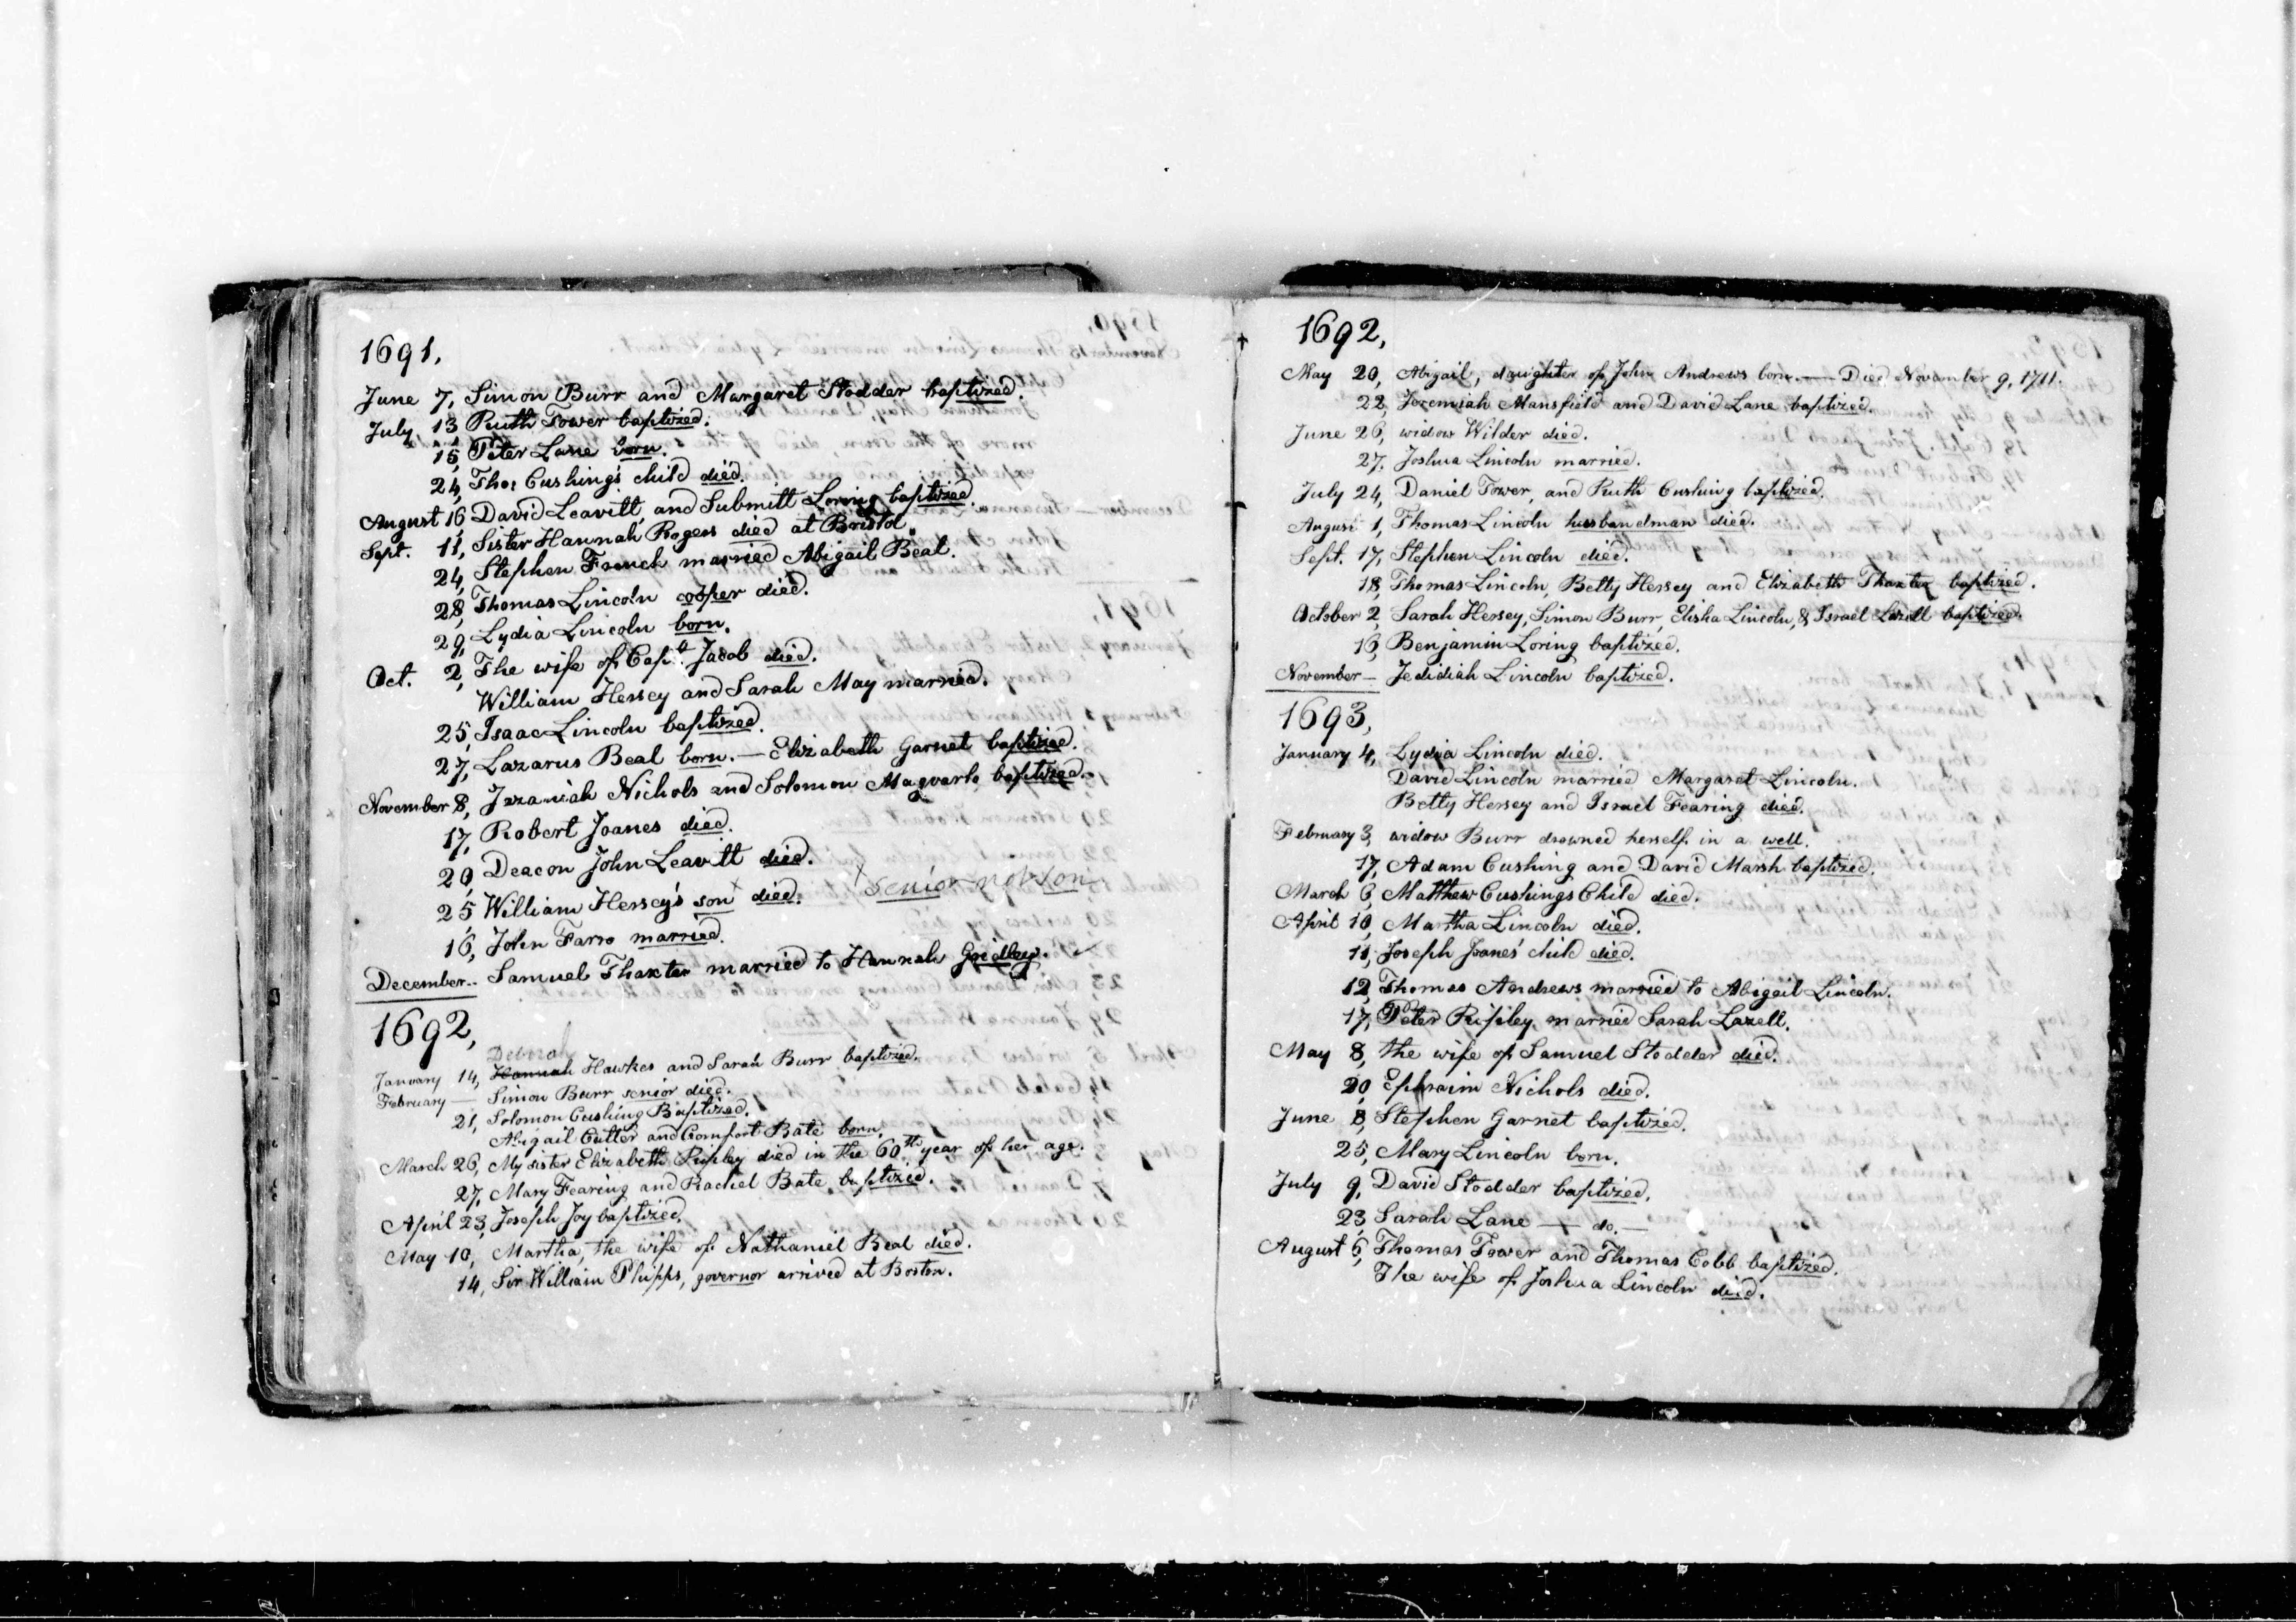 1691,
June 7, Simon Burr and Margaret Stodder baptized.
July, 13 Ruth Tower baptized.
15, Peter Lane born.
24, Thos Cushing's child died.
August 16, David Leavitt, and Submitt Loring baptized.
Sept. 11, Sister Hannah Rogers died at Bristol.
24, Stephen French married Abigail Beal.
28, Thomas Lincoln cooper died.
29, Lydia Lincoln born.
Oct. 2, The wife of Capt. Jacob died.
William Hersey and Sarah May married.
25, Isaac Lincoln baptized.
27, Lazarus Beal born. — Elizabeth Garnet baptized.
November 8, Jazaniah Nichols and Solomon Maqvarlo baptized.
17, Robert Joanes died.
20, Deacon John Leavitt died.
25, William Hersey's son x died. x senior not son
16, John Farro married.
December.. Samuel Thaxter married to Hannah Gridley.
1692,
Deborah
January 14, Hannah Hawkes and Sarah Burr baptized.
February — Simon Burr senior died.
21, Solomon Cushing Baptized.
Abigail Cutter and Comfort Bate born.
March 26, My sister Elizabeth Ripley died in the 60th year of her age.
27, Mary Fearing and Rachel Bate baptized.
April 23, Joseph Joy baptized.
May 10, Martha, the wife of Nathaniel Beal died.
14, Sir William Phipps, governor arrived at Boston.
1692,
May 20, Abigail, daughter of John Andrews born. — Died November 9, 1711.
22, Jeremiah Mansfield and David Lane baptized.
June 26, widow Wilder died.
27, Joshua Lincoln married.
July 24, Daniel Tower, and Ruth Cushing baptized.
August 1, Thomas Lincoln husbandman died.
Sept. 17, Stephen Lincoln died.
18, Thomas Lincoln, Betty Hersey and Elizabeth Thaxter baptized.
October 2, Sarah Hersey, Simon Burr, Elisha Lincoln, & Israel Lazell baptized.
16, Benjamin Loring baptized.
November — Jedidiah Lincoln baptized.
1693,
January 4, Lydia Lincoln died.
David Lincoln married Margaret Lincoln.
Betty Hersey and Israel Fearing died.
February 3, widow Burr drowned herself in a well.
17, Adam Cushing and David Marsh baptized.
March 6, Matthew Cushings Child died.
April 10, Martha Lincoln died.
11, Joseph Joanes' child died.
12, Thomas Andrews married to Abigail Lincoln.
17, Peter Ripley married Sarah Lazell.
May 8, the wife of Samuel Stodder died.
20, Ephraim Nichols died.
June 8, Stephen Garnet baptized.
25, Mary Lincoln born.
July 9, David Stodder baptized.
23, Sarah Lane — do. —
August 6, Thomas Tower and Thomas Cobb baptized.
The wife of Joshua Lincoln died.